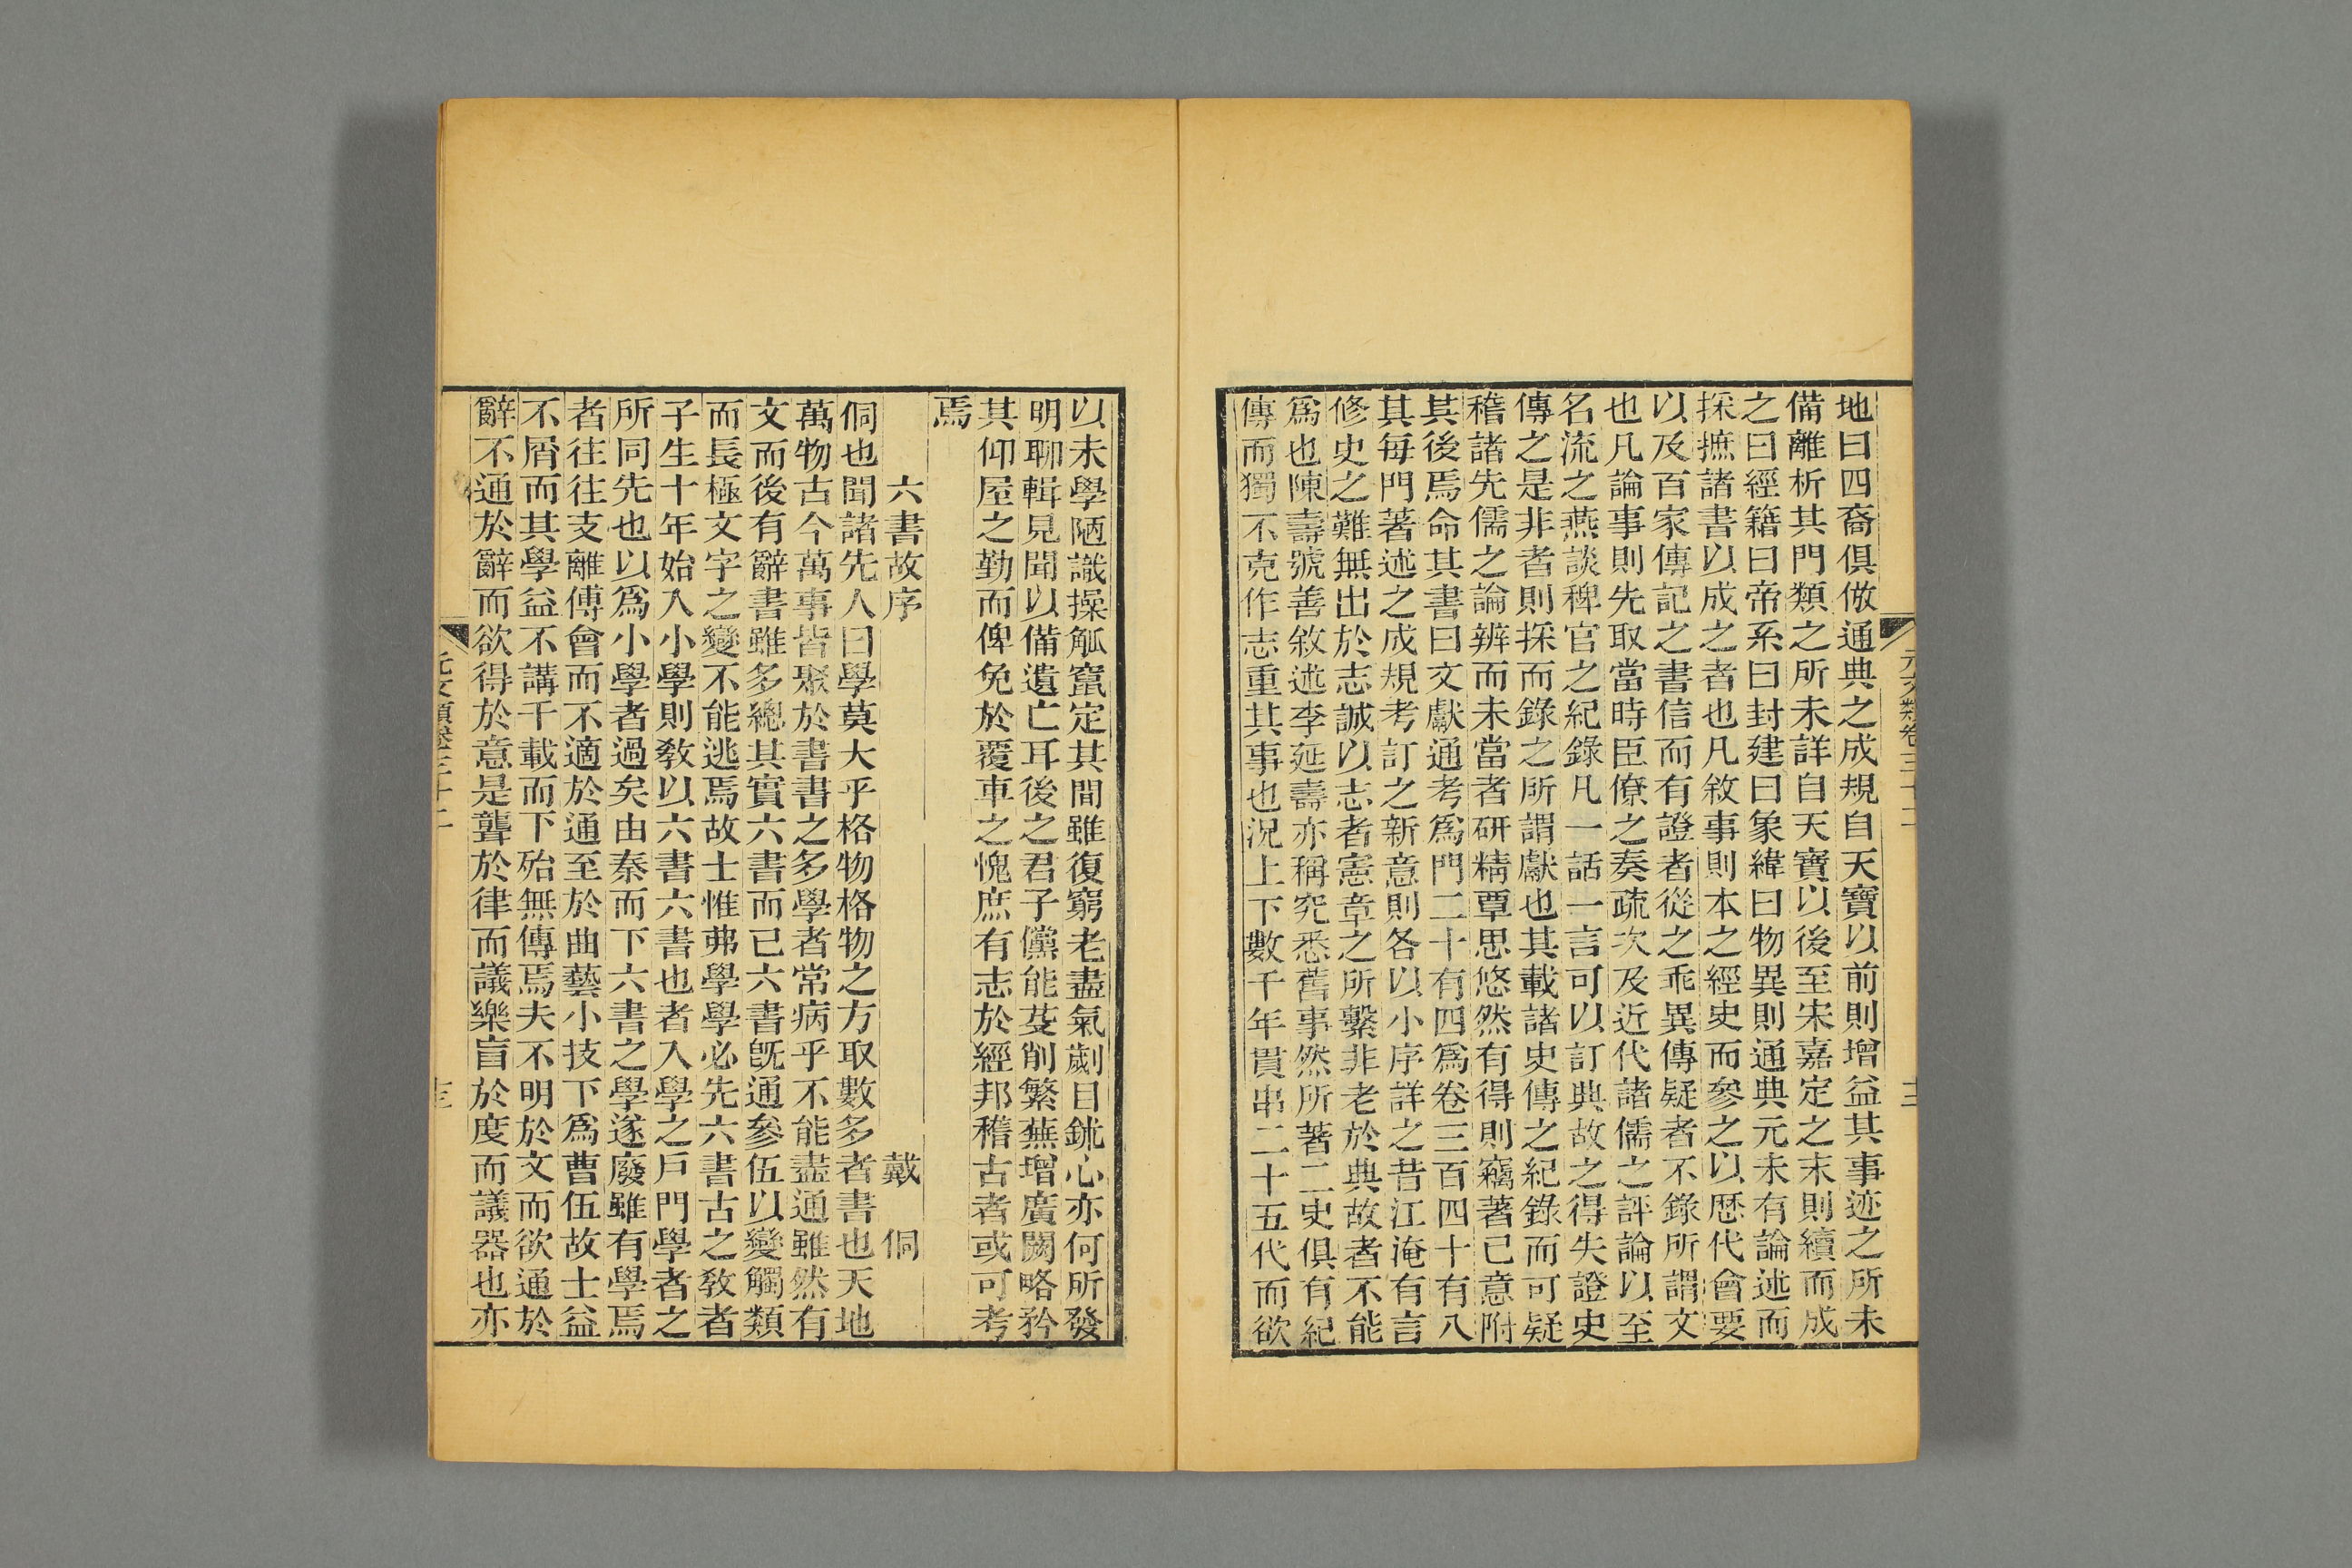 地曰四裔俱倣通典之成規自天寶以前則增益其事迹之所未
備離析其門類之所未詳自天寶以後至宋嘉定之末則續而成
之曰經籍曰帝系曰封建曰象緯曰物異則通典元未有論述而
採摭諸書以成之者也凡敘事則本之經史而參之以歷代會要
以及百家傳記之書信而有證者從之乖異傳疑者不錄所謂文
也凡論事則先取當時臣僚之奏疏次及近代諸儒之評論以至
名流之燕談稗官之紀錄凡一話一言可以訂典故之得失證史
傳之是非者則採而錄之所謂獻也其載諸史傳之紀錄而可疑
稽諸先儒之論辨而未當者研精覃思悠然有得則竊著己意附
其後焉命其書曰文獻通考爲門二十有四爲卷三百四十有八
其每門著述之成規考訂之新意則各以小序詳之昔江淹有言
修史之難無出於志誠以志者憲章之所繫非老於典故者不能
爲也陳壽號善敘述李延壽亦稱究悉舊事然所著二史俱有紀
傳而獨不克作志重其事也況上下數千年貫串二十五代而欲
以未學陋識操觚竄定其間雖復窮老盡氣劌目鉥心亦何所發
明聊輯見聞以備遺亡耳後之君子儻能芟削繁蕪增廣闕略矜
其仰屋之勤而俾免於覆車之愧庶有志於經邦稽古者或可考
焉
六書故序 戴侗
侗也聞諸先人曰學莫大乎格物格物之方取數多者書也天地
萬物古今萬事皆聚於書書之多學者常病乎不能盡通雖然有
文而後有辭書雖多總其實六書而已六書旣通參伍以變觸類
而長極文字之變不能逃焉故士惟弗學學必先六書古之教者
子生十年始入小學則教以六書六書也者入學之戶門學者之
所同先也以爲小學者過矣由秦而下六書之學遂廢雖有學焉
者往往支離傅會而不適於通至於曲藝小技下爲曹伍故士益
不屑而其學益不講千載而下殆無傳焉夫不明於文而欲通於
辭不通於辭而欲得於意是聾於律而議樂盲於度而議器也亦